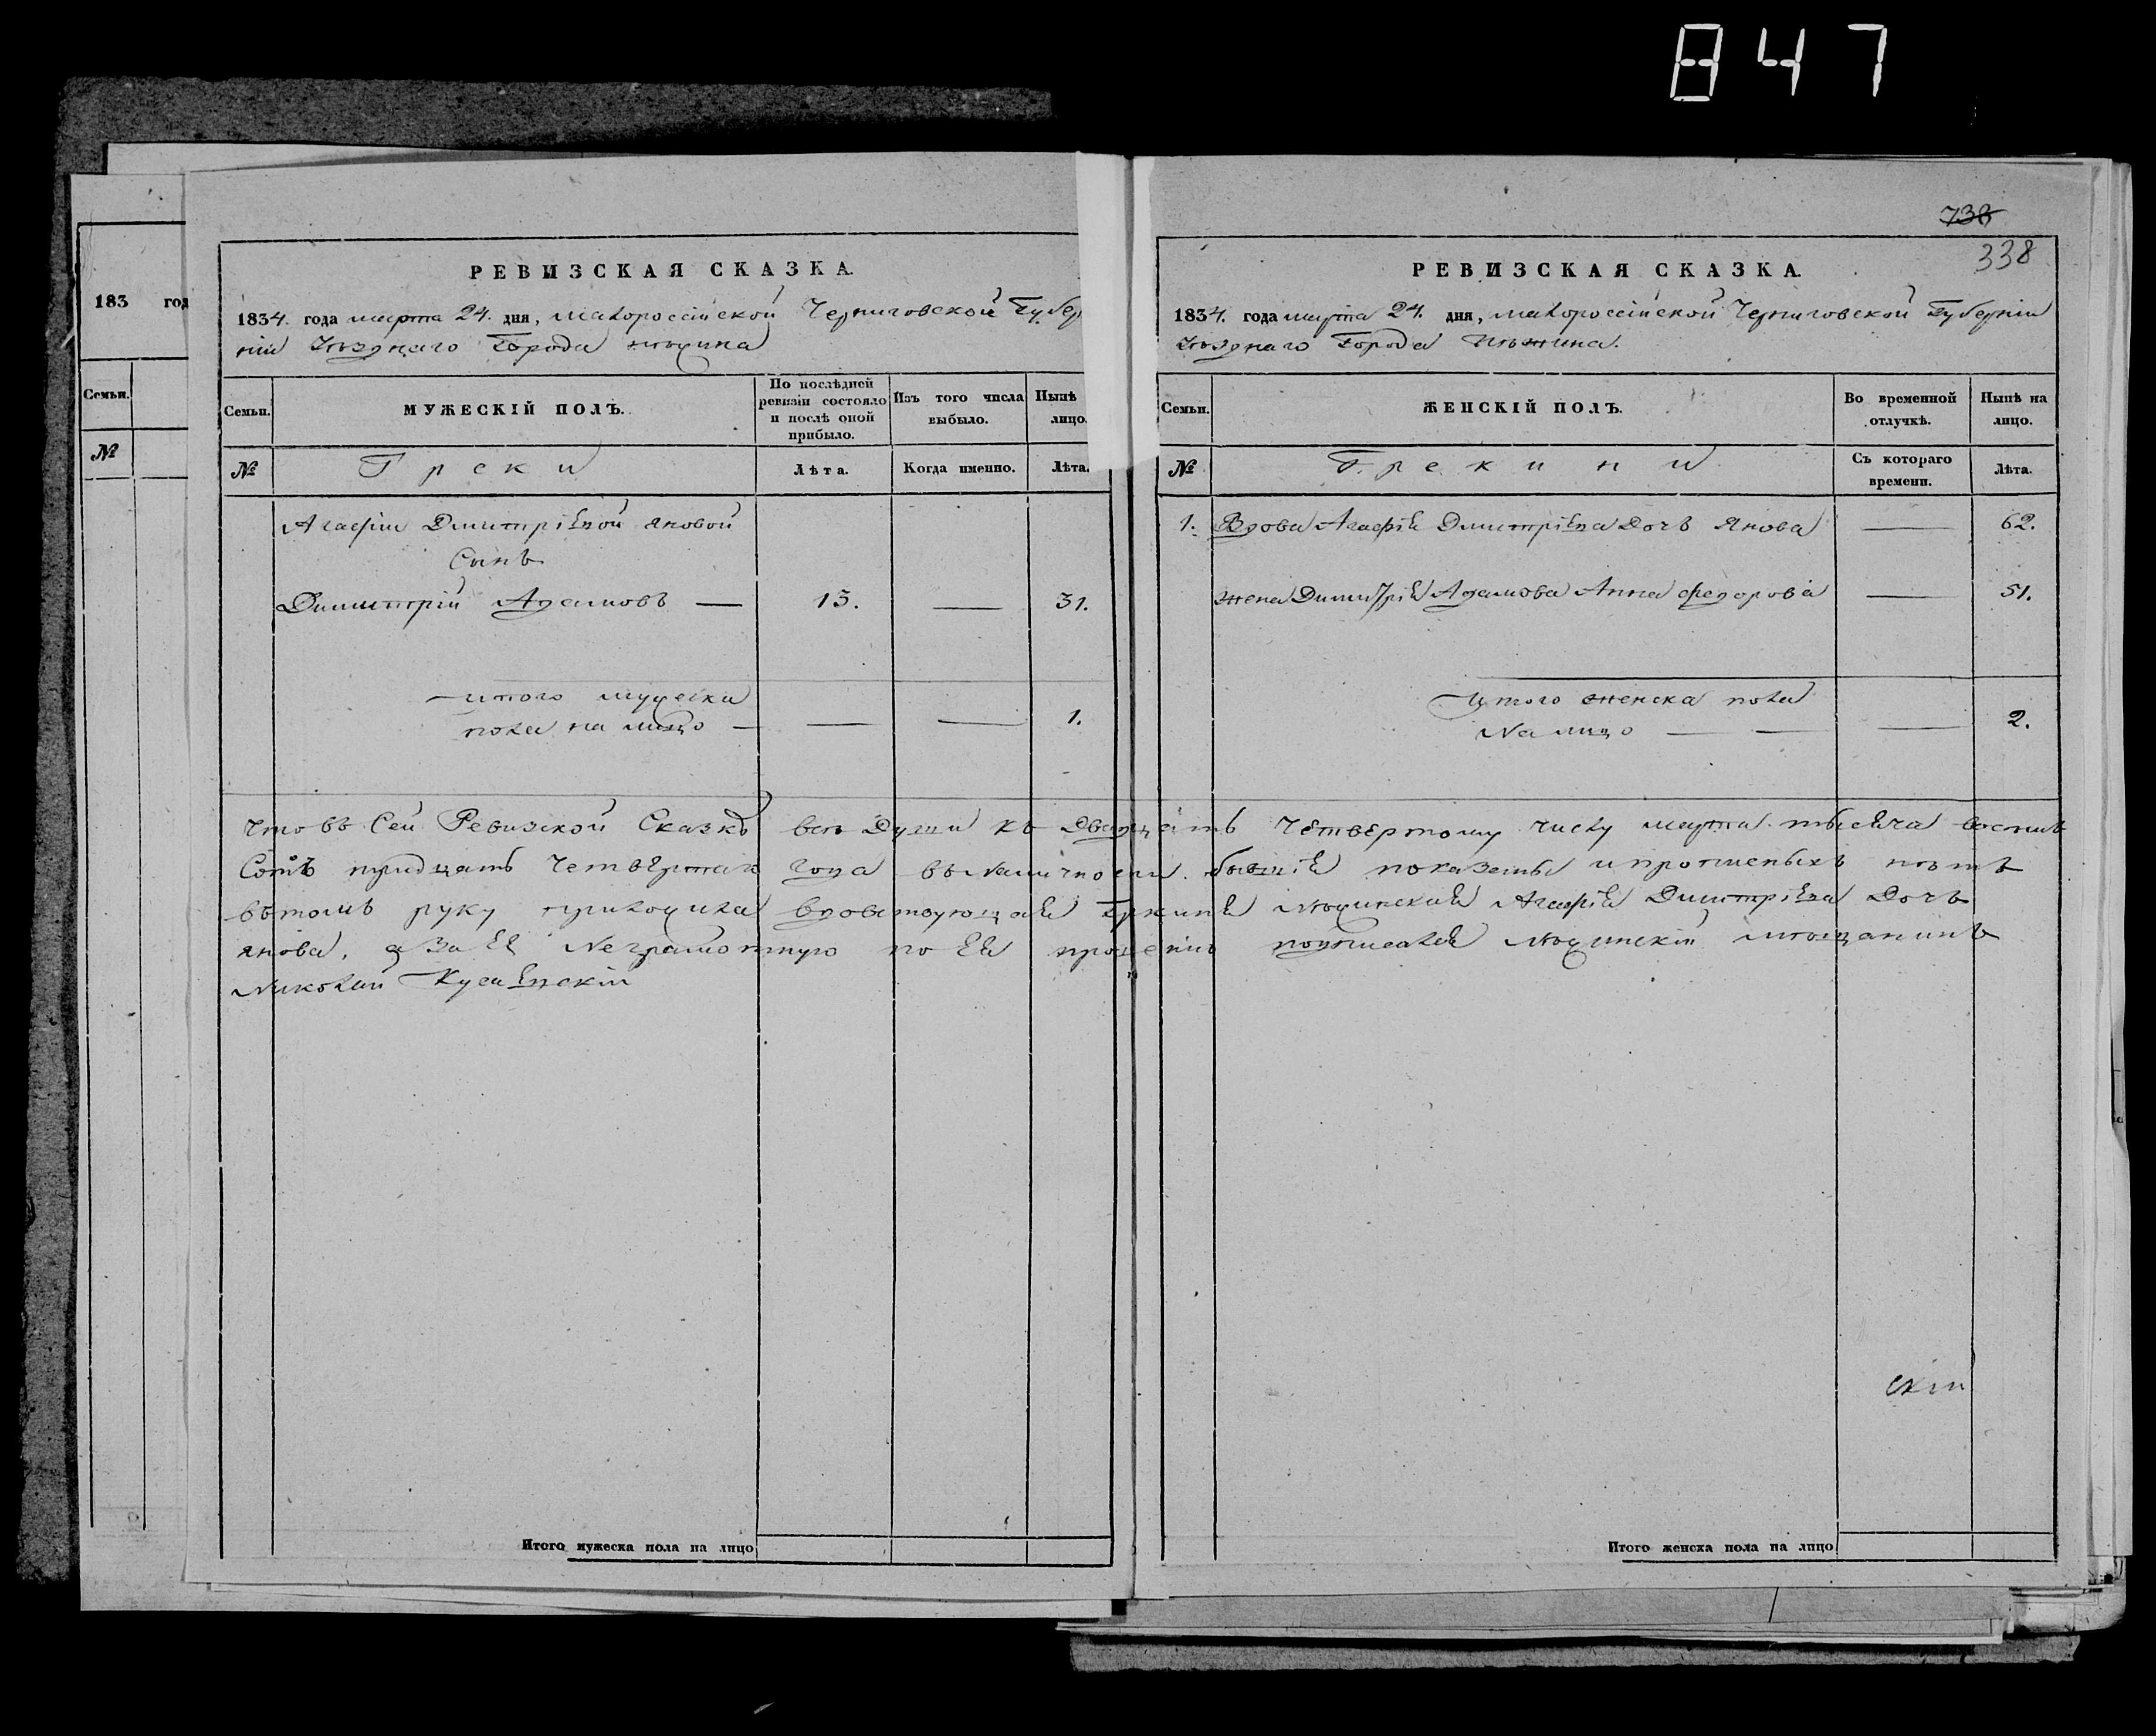 847
183 год
Семьи.
№
РЕВИЗСКАЯ СКАЗКА.
1834. года марта 24. дня, Малороссійской Черниговской Губер
ніи уѣзднаго Города нѣжина
Семьи.
МУЖЕСКІЙ ПОЛЪ.
По послѣдней ревизіи состояло и послѣ оной прибыло.
Изъ того числа выбыло.
Нынѣ лицо.
№
Греки
Лѣта.
Когда именно.
Лѣта.
Агафіи Дмитріевой яновой
Сынъ
Димитрій Адамовъ — 13. — 31.
итого мужеска
пола на лицо — — — 1.
738
338
РЕВИЗСКАЯ СКАЗКА.
1834. года марта 24. дня, малороссійской Черниговской Губерніи
уѣзднаго Города Нѣжина.
Семьи.
ЖЕНСКІЙ ПОЛЪ.
Во временной отлучкѣ.
Нынѣ на лицо.
№
Грекини
Съ котораго времени.
Лѣта.
1. Вдова Агафія Дмитріева Дочь Янова — 62.
жена Димитрія Адамова Анна федорова — 51.
Итого женска пола
На лицо — — — 2.
Что въ Сей Ревизской Сказкѣ всѣ Души къ Двадцать Четвертому числу марта тысяча восемь
Сотъ тридцать Четвертаго года въ наличности бывшія показаны и прописныхъ нѣтъ
вътомъ руку приложила вдовствующая Грекиня Нѣжинская Агафія Дмитріева Дочь
янова, а За Ея Неграмотную по Ея прошенію подписался Нѣжинскій мѣщанинъ
Николай
скій
Итого мужеска пола на лицо
Итого женска пола на лицо